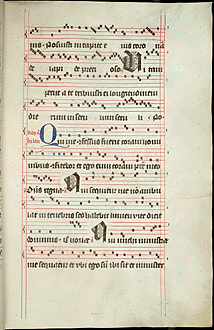 Posuisti in capite e ius coro na
de lapi de preti oso V itam
petiit a te tribuisti ei longitudinem
die rum in secu
Qui me confessus fuerit coram homi
nibus et ego eum coram patre meo
Qui sequitur me non ambu
lat in tenebris sed habebit lumen vite dicit
dominus Qui michi ministrat
me sequatur et ubi ego sum ibi sit et minister